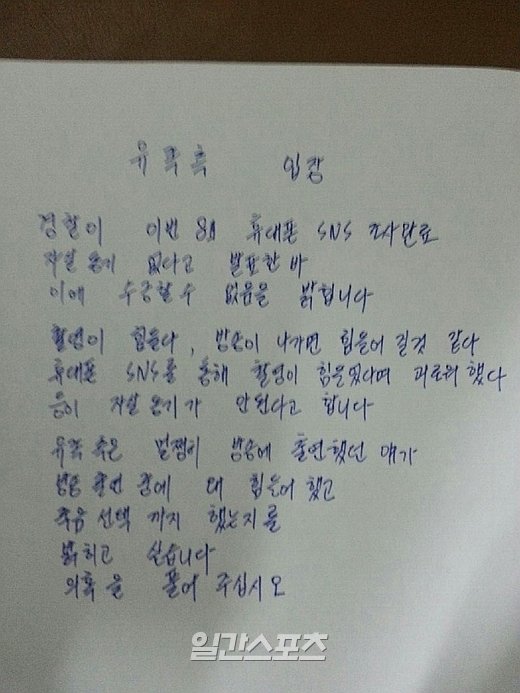 유족측 입장
경찰이 이번 8일 휴대폰 SNS 조사완료
자살 동기 없다고 발표한 바
이에 수긍할 수 없음을 밝힙니다
촬영이 힘들다, 방송이 나가면 힘들어 질것 같다
휴대폰 SNS를 통해 촬영이 힘들었다며 괴로워 했다
등이 자살 동기가 안된다고 합니다
유족 측은 멀쩡히 방송에 출연했던 얘가
방송 출연 중에 왜 힘들어 했고
죽음 선택 까지 했는지를
밝히고 싶습니다
의혹을 풀어 주십시오
일간스포츠